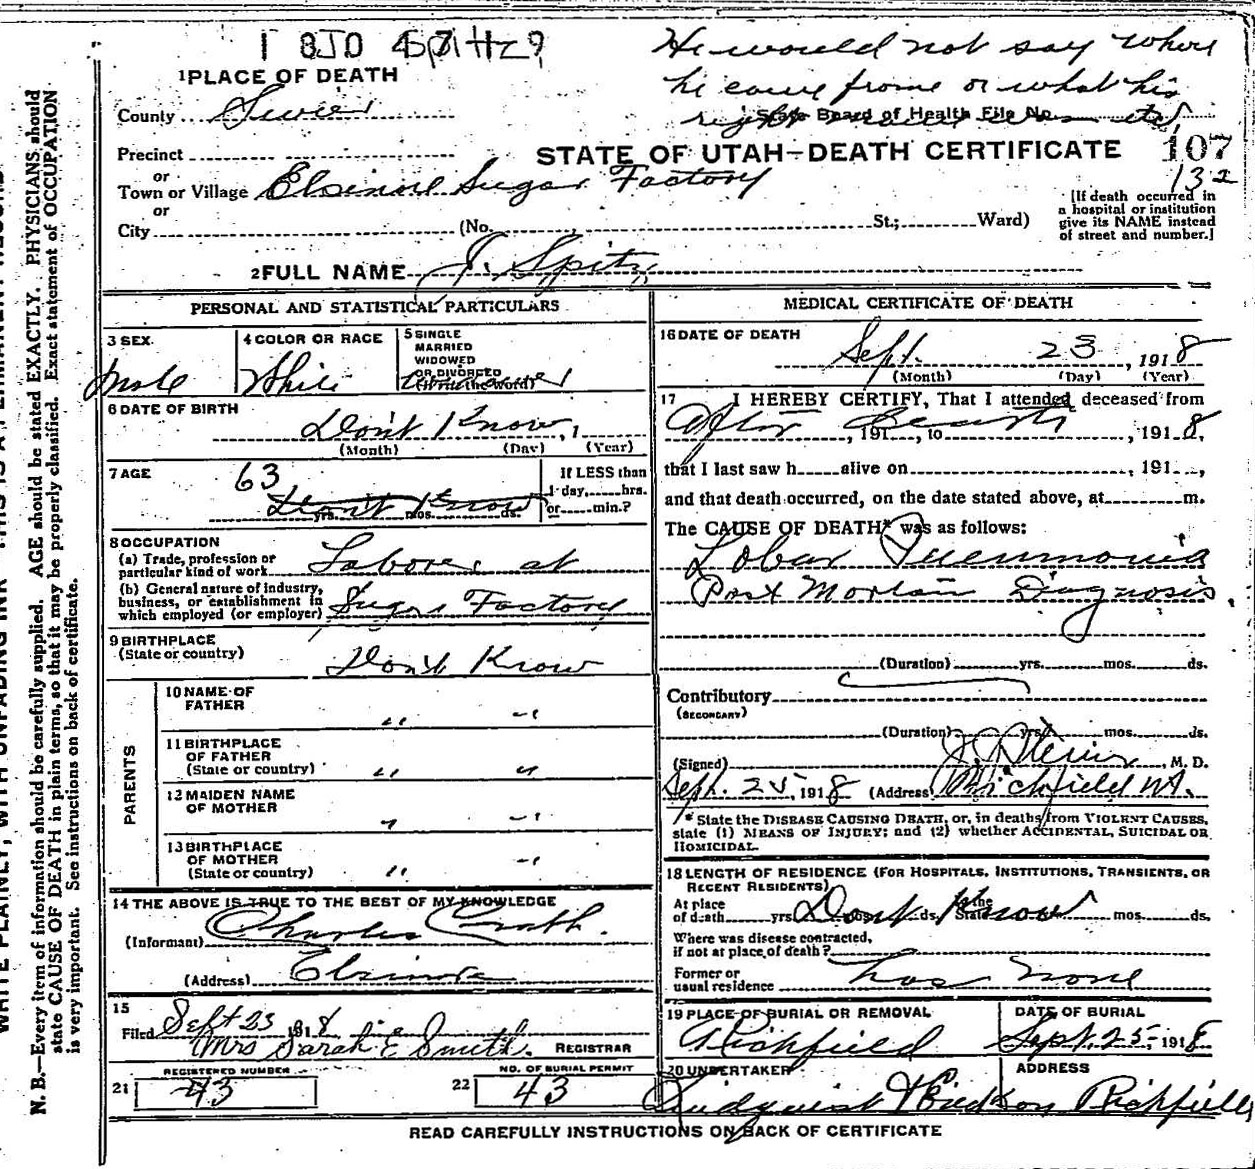 He would not say where
he came from or what his
right name was etc
1 PLACE OF DEATH
County Sevier
State Board of Health File No.
Precinct
STATE OF UTAH—DEATH CERTIFICATE
107
132
or
Town or Village Elsinore Sugar Factory
or
City (No. St.; Ward)
[If death occurred in
a hospital or institution
give its NAME instead
of street and number.]
2 FULL NAME J. Spitz
PERSONAL AND STATISTICAL PARTICULARS
3 SEX
Male
4 COLOR OR RACE
White
5 SINGLE
MARRIED
WIDOWED
OR DIVORCED
(Write the word)
6 DATE OF BIRTH
Don't Know, 1
(Month) (Day) (Year)
7 AGE
63
Don't Know
yrs. mos. ds.
If LESS than
1 day, hrs.
or min.?
8 OCCUPATION
(a) Trade, profession or
particular kind of work Laborer at
(b) General nature of industry,
business, or establishment in
which employed (or employer) Sugar Factory
9 BIRTHPLACE
(State or country) Don't Know
PARENTS
10 NAME OF
FATHER " "
11 BIRTHPLACE
OF FATHER
(State or country) " "
12 MAIDEN NAME
OF MOTHER " "
13 BIRTHPLACE
OF MOTHER
(State or country) " "
14 THE ABOVE IS TRUE TO THE BEST OF MY KNOWLEDGE
(Informant) Charles
(Address) Elsinore
15
Filed Sept 23 1918
Mrs Sarah E Smith. REGISTRAR
REGISTERED NUMBER
21 43
NO. OF BURIAL PERMIT
22 43
MEDICAL CERTIFICATE OF DEATH
16 DATE OF DEATH
Sept. 23, 1918
(Month) (Day) (Year)
17 I HEREBY CERTIFY, That I attended deceased from
After Death, 191, to , 1918,
that I last saw h alive on , 191,
and that death occurred, on the date stated above, at m.
The CAUSE OF DEATH* was as follows:
Lobar Pneumonia
Post Mortem Diagnosis.
(Duration) yrs. mos. ds.
Contributory
(SECONDARY)
(Duration) yrs. mos. ds.
(Signed) , M. D.
Sept. 25, 1918 (Address) Richfield Ut.
* State the DISEASE CAUSING DEATH, or, in deaths from VIOLENT CAUSES,
state (1) MEANS OF INJURY; and (2) whether ACCIDENTAL, SUICIDAL OR
HOMICIDAL.
18 LENGTH OF RESIDENCE (FOR HOSPITALS, INSTITUTIONS, TRANSIENTS, OR
RECENT RESIDENTS)
At place
of death yrs. mos. ds. In the State mos. ds.
Dont Know
Where was disease contracted,
if not at place of death?
Former or
usual residence has none
19 PLACE OF BURIAL OR REMOVAL
Richfield
DATE OF BURIAL
Sept. 25-1918
20 UNDERTAKER
ADDRESS
Richfield
READ CAREFULLY INSTRUCTIONS ON BACK OF CERTIFICATE
N. B.—Every item of information should be carefully supplied. AGE should be stated EXACTLY. PHYSICIANS should
state CAUSE OF DEATH in plain terms, so that it may be properly classified. Exact statement of OCCUPATION
is very important. See instructions on back of certificate.